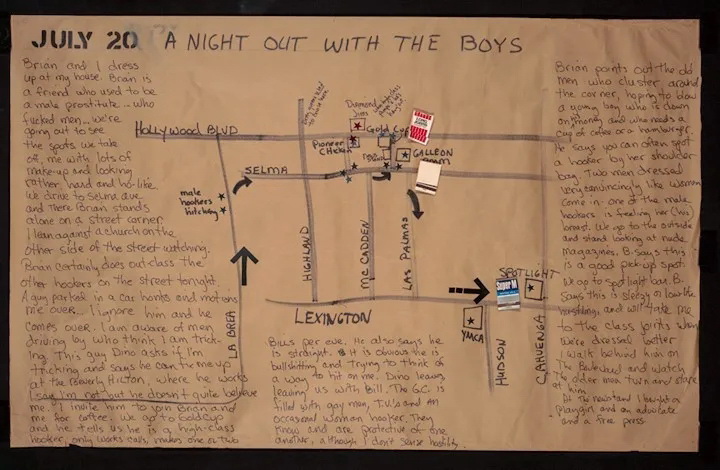 JULY 20 A NIGHT OUT WITH THE BOYS
Brian and I dress
up at my house. Brian is
a friend who used to be
a male prostitute... who
fucked men... we're
going out to see
the spots. We take
off, me with lots of
make-up and looking
rather hard and ho-like.
We drive to Selma ave.
and there Brian stands
alone on a street corner
I lean against a church on the
other side of the street watching.
Brian certainly does out class the
other hookers on the street tonight.
A guy parked in a car honks and motions
me over... I ignore him and he
comes over. I am aware of men
driving by who think I am trick-
ing. This guy Dino asks if I'm
tricking and says he can tie me up
at the Beverly Hilton, where he works
I say I'm not but he doesn't quite believe
me. I invite him to join Brian and
me for coffee. We go to Goldcup
and he tells us he is a high-class
hooker, only works cars, makes one or two
HOLLYWOOD BLVD
SELMA
male
hookers
hitching
Diamond
Jims
Pioneer
Chicken
Gold Cup
GALLEON
ROOM
LA BREA
HIGHLAND
MC CADDEN
LAS PALMAS
LEXINGTON
Super M
SPOTLIGHT
YMCA
HUDSON
CAHUENGA
Bills per eve. He also says he
is straight. It is obvious he is
bullshitting and trying to think of
a way to hit on me. Dino leaves,
leaving us with Bill. The G.C. is
filled with gay men, T.V.'s and an
occasional woman hooker. They
know and are protective of one
another, although I don't sense hostility.
Brian points out the old
men who cluster around
the corner, hoping to blow
a young boy who is down
on money and who needs a
cup of coffee or a hamburger.
He says you can often spot
a hooker by her shoulder
bag. Two men dressed
very convincingly like women
come in - one of the male
hookers is feeling her (his)
breast. We go to the outside
and stand looking at nude
magazines. B. says this
is a good pick-up spot.
We go to Spotlight bar. B.
says this is sleazy or low life
and will take me
to the class joints when
we're dressed better
I walk behind him on
The Boulevard and watch
The older men turn and stare
at him
At the newstand I bought a
playgirl and an advocate
and a free press